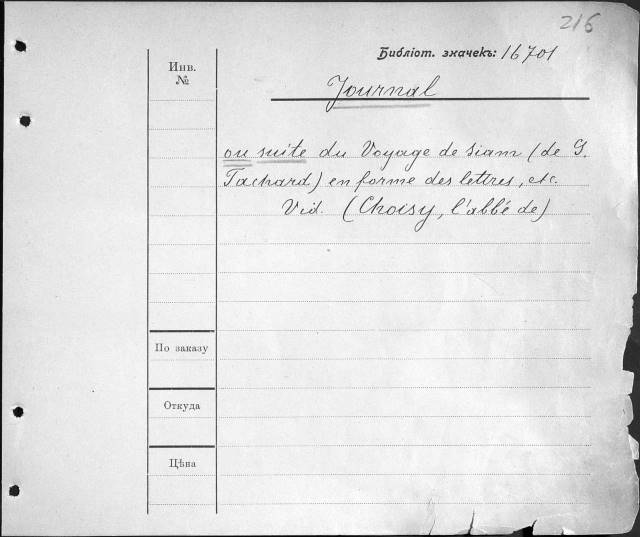 216
Библіот. значекъ: 16701
Инв.
№
Journal
ou suite du Voyage de Siam (de G.
Tachard) en forme des lettres, etc.
Vid. (Choisy, l'abbé de)
По заказу
Откуда
Цѣна